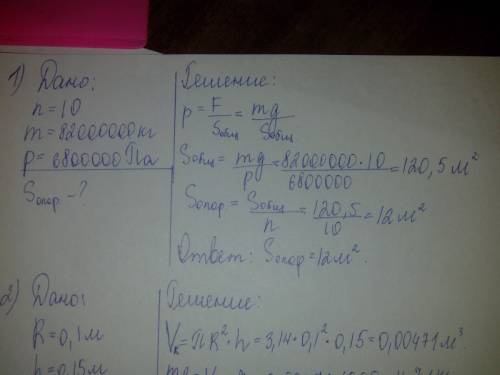 1) Дано:
n = 10
m = 82000000 кг
p = 6800000 Па
Sопор - ?
Решение:
p = F/Sобщ = mg/Sобщ
Sобщ = mg/p = 82000000·10/6800000 = 120,5 м²
Sопор = Sобщ/n = 120,5/10 = 12 м²
Ответ: Sопор = 12 м².
2) Дано:
R = 0,1 м
h = 0,15 м
Решение:
Vк = πR²·h = 3,14·0,1²·0,15 = 0,00471 м³